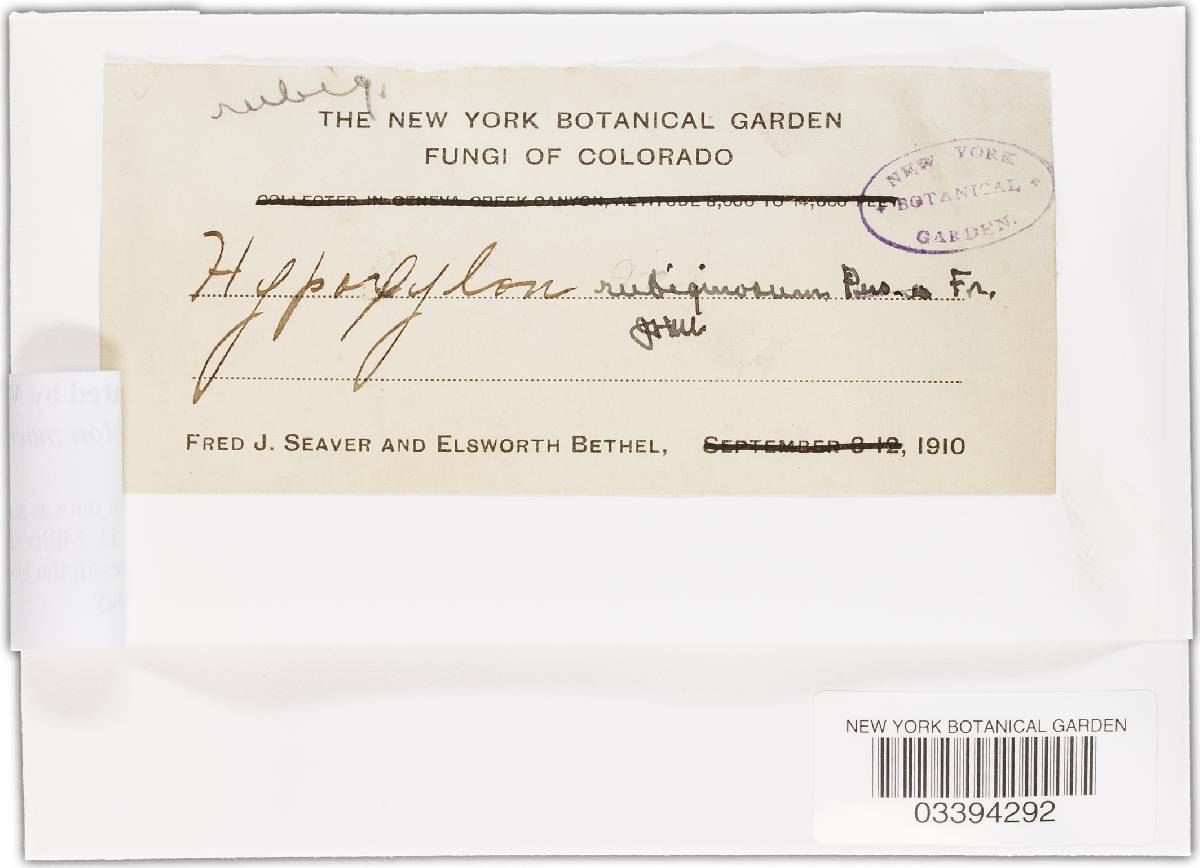 rubig.
THE NEW YORK BOTANICAL GARDEN
FUNGI OF COLORADO
COLLECTED IN GENEVA CREEK CANYON, ALTITUDE 8,000 TO 14,000 FEET
NEW YORK
BOTANICAL
GARDEN.
Hypoxylon rubiginosum Pers. ex Fr.
JHM
FRED J. SEAVER AND ELSWORTH BETHEL, SEPTEMBER 8-12, 1910
NEW YORK BOTANICAL GARDEN
03394292